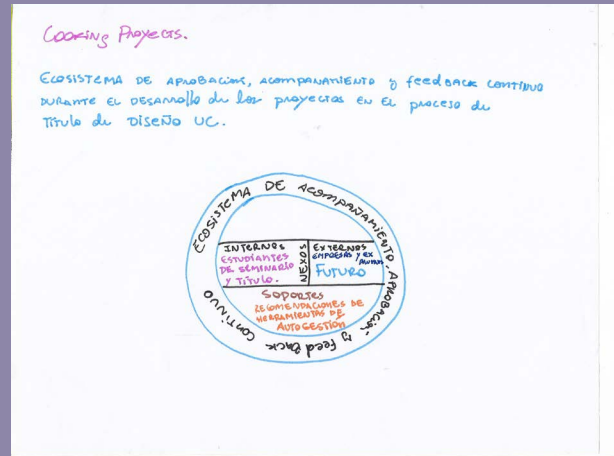 Cooking Proyects.
Ecosistema de aprobación, acompañamiento y feedback continuo
durante el desarrollo de los proyectos en el proceso de
Título de Diseño UC.
ECOSISTEMA DE ACOMPAÑAMIENTO, APROBACIÓN y feedback CONTINUO
INTERNOS
ESTUDIANTES
DE SEMINARIO
Y TÍTULO.
NEXOS
EXTERNOS
EMPRESAS Y EX
ALUMNOS
FUTURO
SOPORTES
RECOMENDACIONES DE
HERRAMIENTAS DE
AUTOGESTIÓN